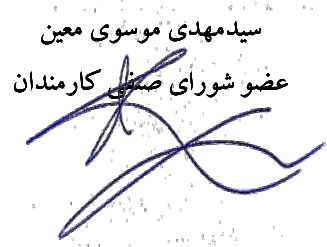 سیدمهدی موسوی معین
عضو شورای صنفی کارمندان